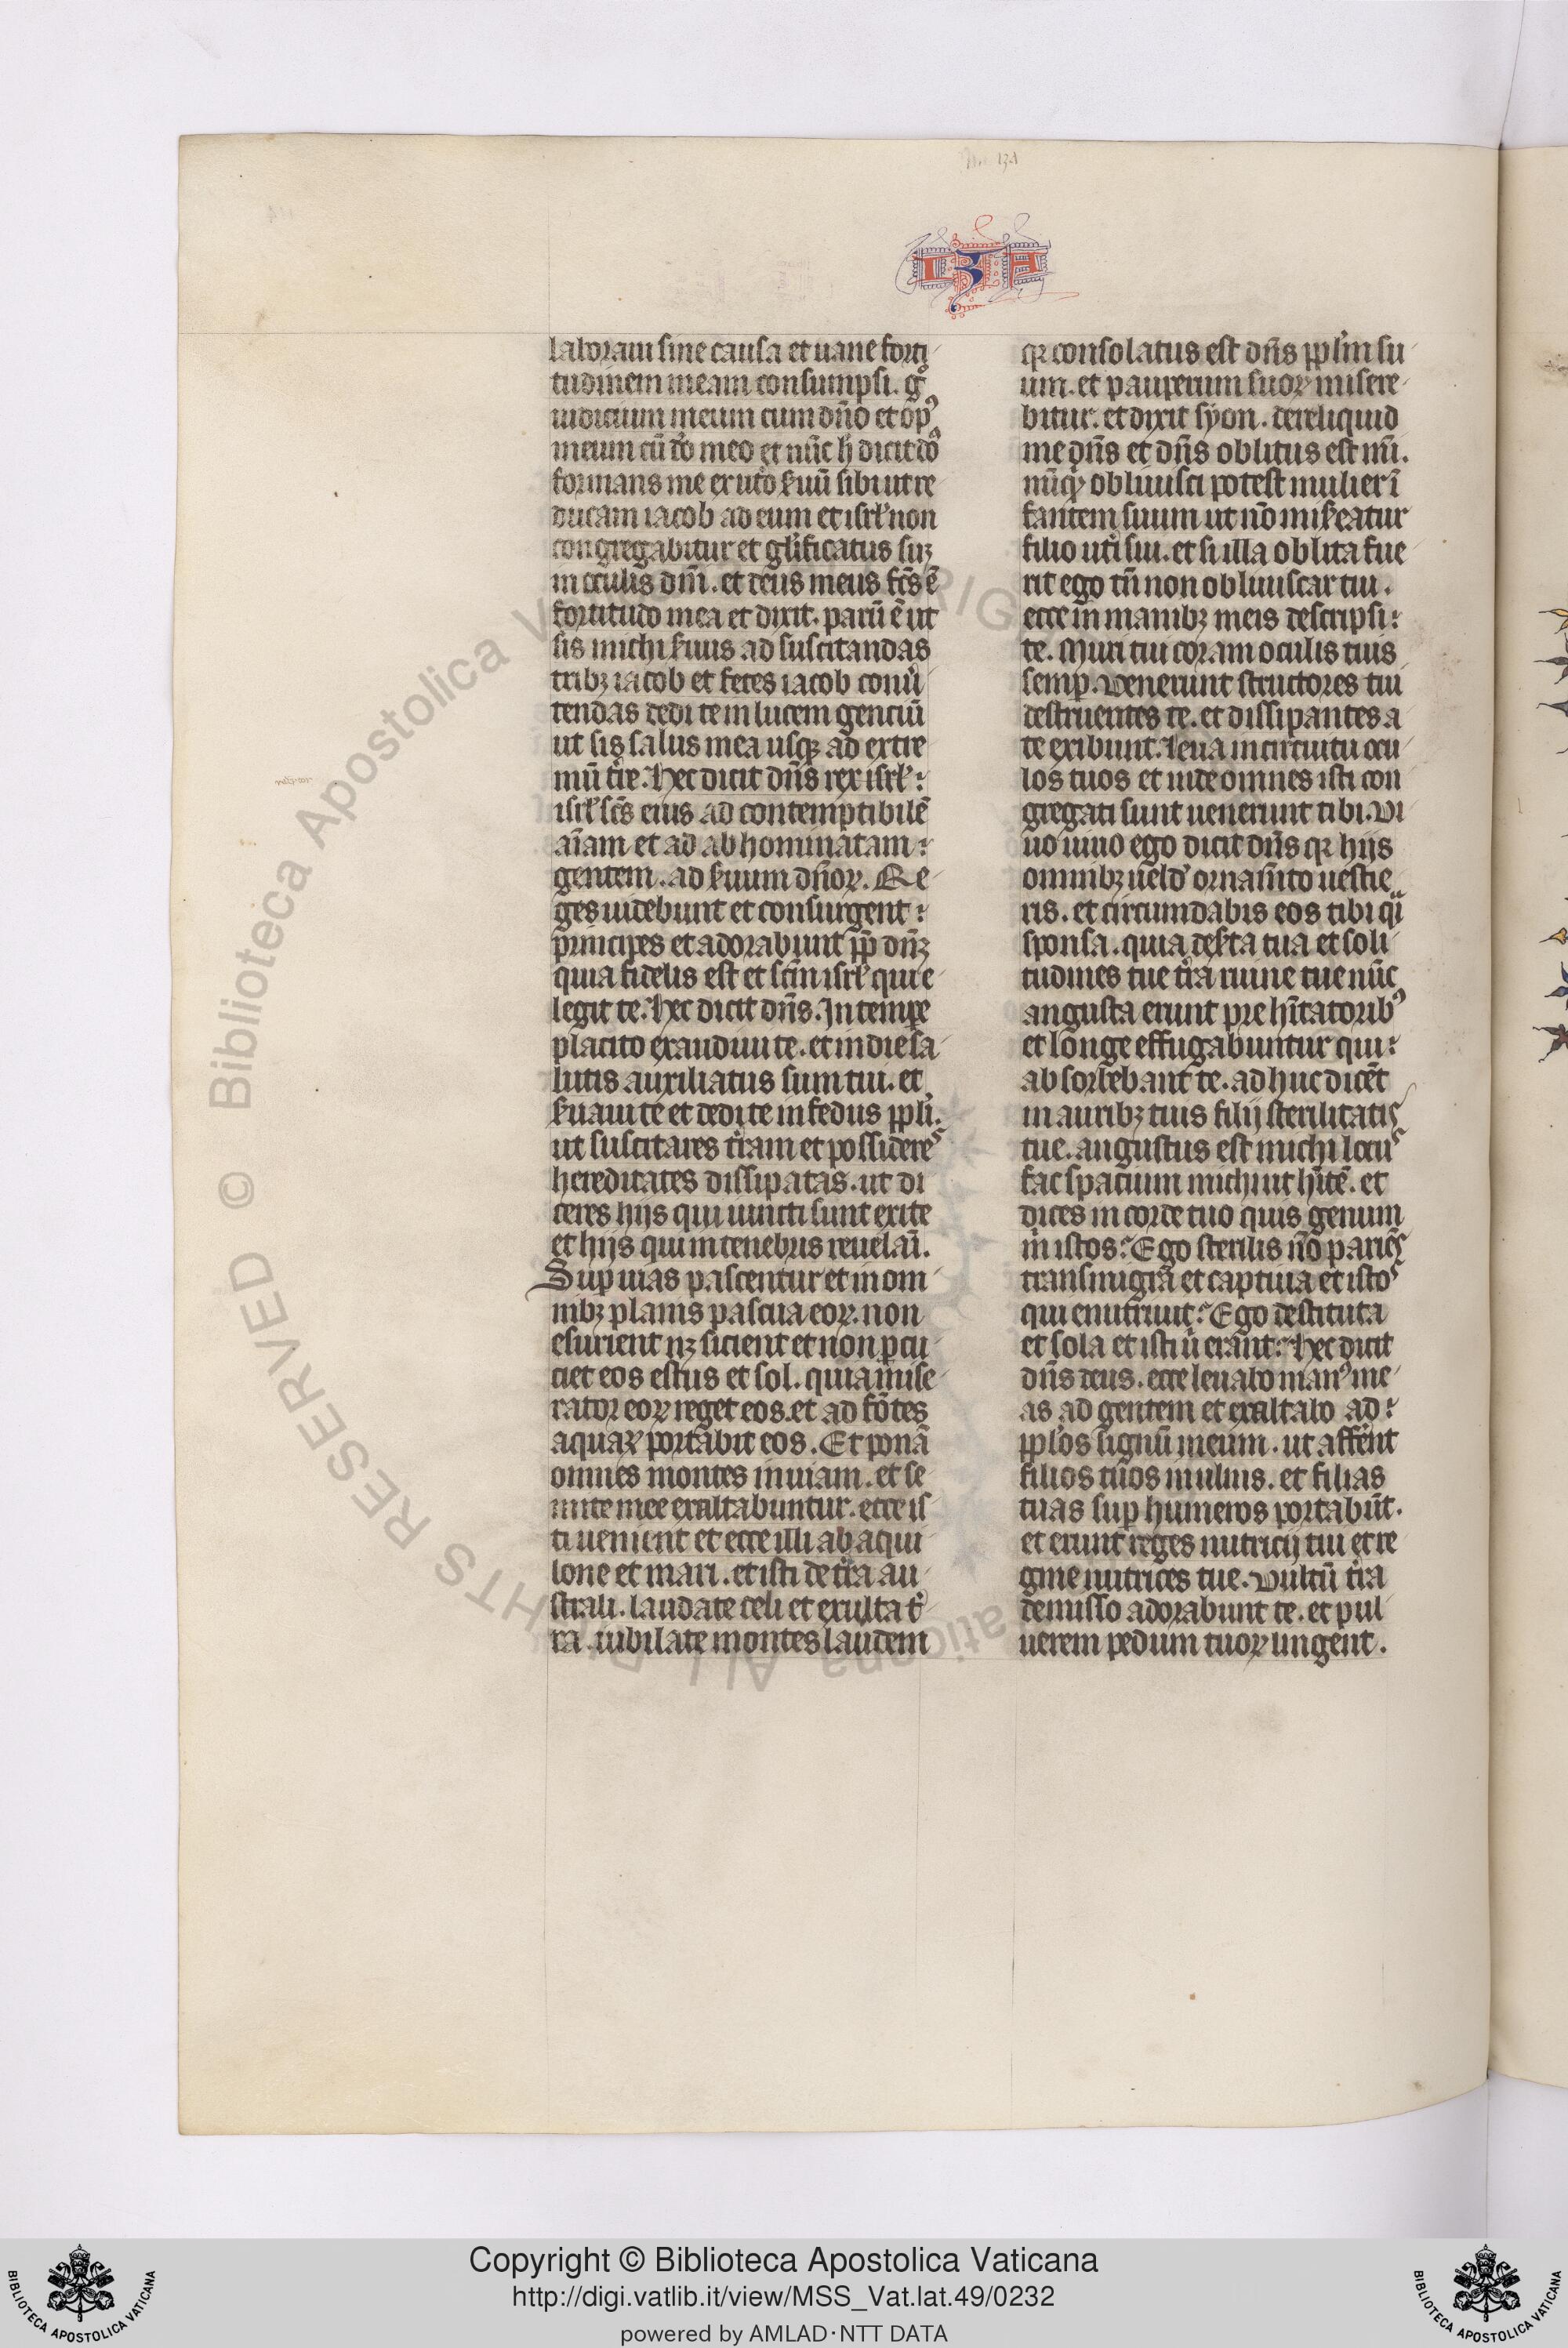 YZA
laboraui sine causa et uane forti
tudinem meam consumpsi. gͦ
iudicium meum cum dn̄o et op̄ꝰ
meum cū dō meo et nūc h̄ dicit dōͣ
formans me ex utͦo s̓uū sibi ut re
ducam iacob ad eum et isrl̓ non
congregabitur et gl̓ificatus suꝫ
in oculis dn̄i. et deus meus fc̄s ē
fortitudo mea et dixit. parū ē ut
sis michi s̓uus ad suscitandas
tribꝫ iacob et feces iacob conu̓
tendas dedi te in lucem gentiū
ut sis salus mea usqꝫ ad extre
mū t̓re. Hec dicit dn̄s rex isrl̓
isrl̓ sc̄s eius ad contemptibilē
aīam et ad abhominatam
gentem. ad s̓uum dn̄oꝝ. Re
ges uidebunt et consurgent
principes et adorabunt ꝓp̄ dn̄ꝫ
quia fidelis est et sc̄m isrl̓ qui e
legit te. Hec dicit dn̄s. In tempe
placito exaudiui te. et in die sa
lutis auxiliatus sum tui. et
s̓uaui te et dedi te in fedus ppl̓i.
ut suscitares t̓ram et possideres
hereditates dissipatas. ut di
ceres hijs qui uincti sunt exite
et hijs qui in tenebris reuelam̄.
Suꝑ uias pascentur et in om
nibꝫ planis pascua eoꝝ. non
esurient nꝫ sicient et non ꝑcu
ciet eos estus et sol. quia mise
rator eoꝝ reget eos. et ad fōtes
aquaꝝ portabit eos. Et ponā
omnes montes in uiam. et se
mite mee exaltabuntur. ecce is
ti uenient et ecce illi ab aqui
lone et mari. et isti de t̓ra au
strali. laudate celi et exulta t̓
ra. iubilate montes laudem
qꝛ consolatus est dn̄s ppl̓m su
um. et pauperum suoꝝ misere
bitur. et dixit syon. dereliquid
me dn̄s et dn̄s oblitus est mī.
nūqꝫ obliuisci potest mulier ī
fantem suum ut nō mis̓eatur
filio ut̓i sui. et si illa oblita fue
rit ego tn̄ non obliuiscar tui.
ecce in manibꝫ meis descripsi
te. Muri tui coram oculis tuis
semꝑ. Venerunt structores tui
destruentes te. et dissipantes a
te exibunt. leua in circuitu ocu
los tuos et uide omnes isti con
gregati sunt uenerunt tibi. Vi
uo uiuo ego dicit dn̄s qꝛ hijs
omnibꝫ uel̓d ornam̄to uestie
ris. et circumdabis eos tibi qͣi
sponsa. quia des̓ta tua et soli
tudines tue t̓ra ruine tue nūc
angusta erunt pre hītatoribꝰ
et longe effugabuntur qui
absorbebant te. adhuc dicēt
in auribꝫ tuis filij sterilitatis
tue. angustus est michi locus
fac spacium michi ut hītē. et
dices in corde tuo quis genuit
m̓ istos? Ego sterilis nō pariēs
transmigrā et captiua et istos
qui enutriuit? Ego destituta
et sola et isti u̓ erant? Hec dicit
dn̄s deus. ecce leuabo manꝰ me
as ad gentem et exaltabo ad
ppl̓os signū meum. ut affent
filios tuos in ulnis. et filias
tuas suꝑ humeros portabūt.
et erunt reges nutricij tui et re
gine nutrices tue. Vultū t̓ra
demisso adorabunt te. et pul
uerem pedum tuoꝝ lingent.
© Biblioteca Apostolica Vaticana ALL RIGHTS RESERVED
Copyright © Biblioteca Apostolica Vaticana
http://digi.vatlib.it/view/MSS_Vat.lat.49/0232
powered by AMLAD·NTT DATA
BIBLIOTECA APOSTOLICA VATICANA
BIBLIOTECA APOSTOLICA VATICANA